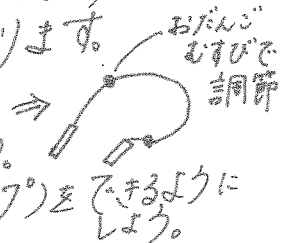 ります。
おだんご
むすびで
調節
。
プ)をできるように
しよう。